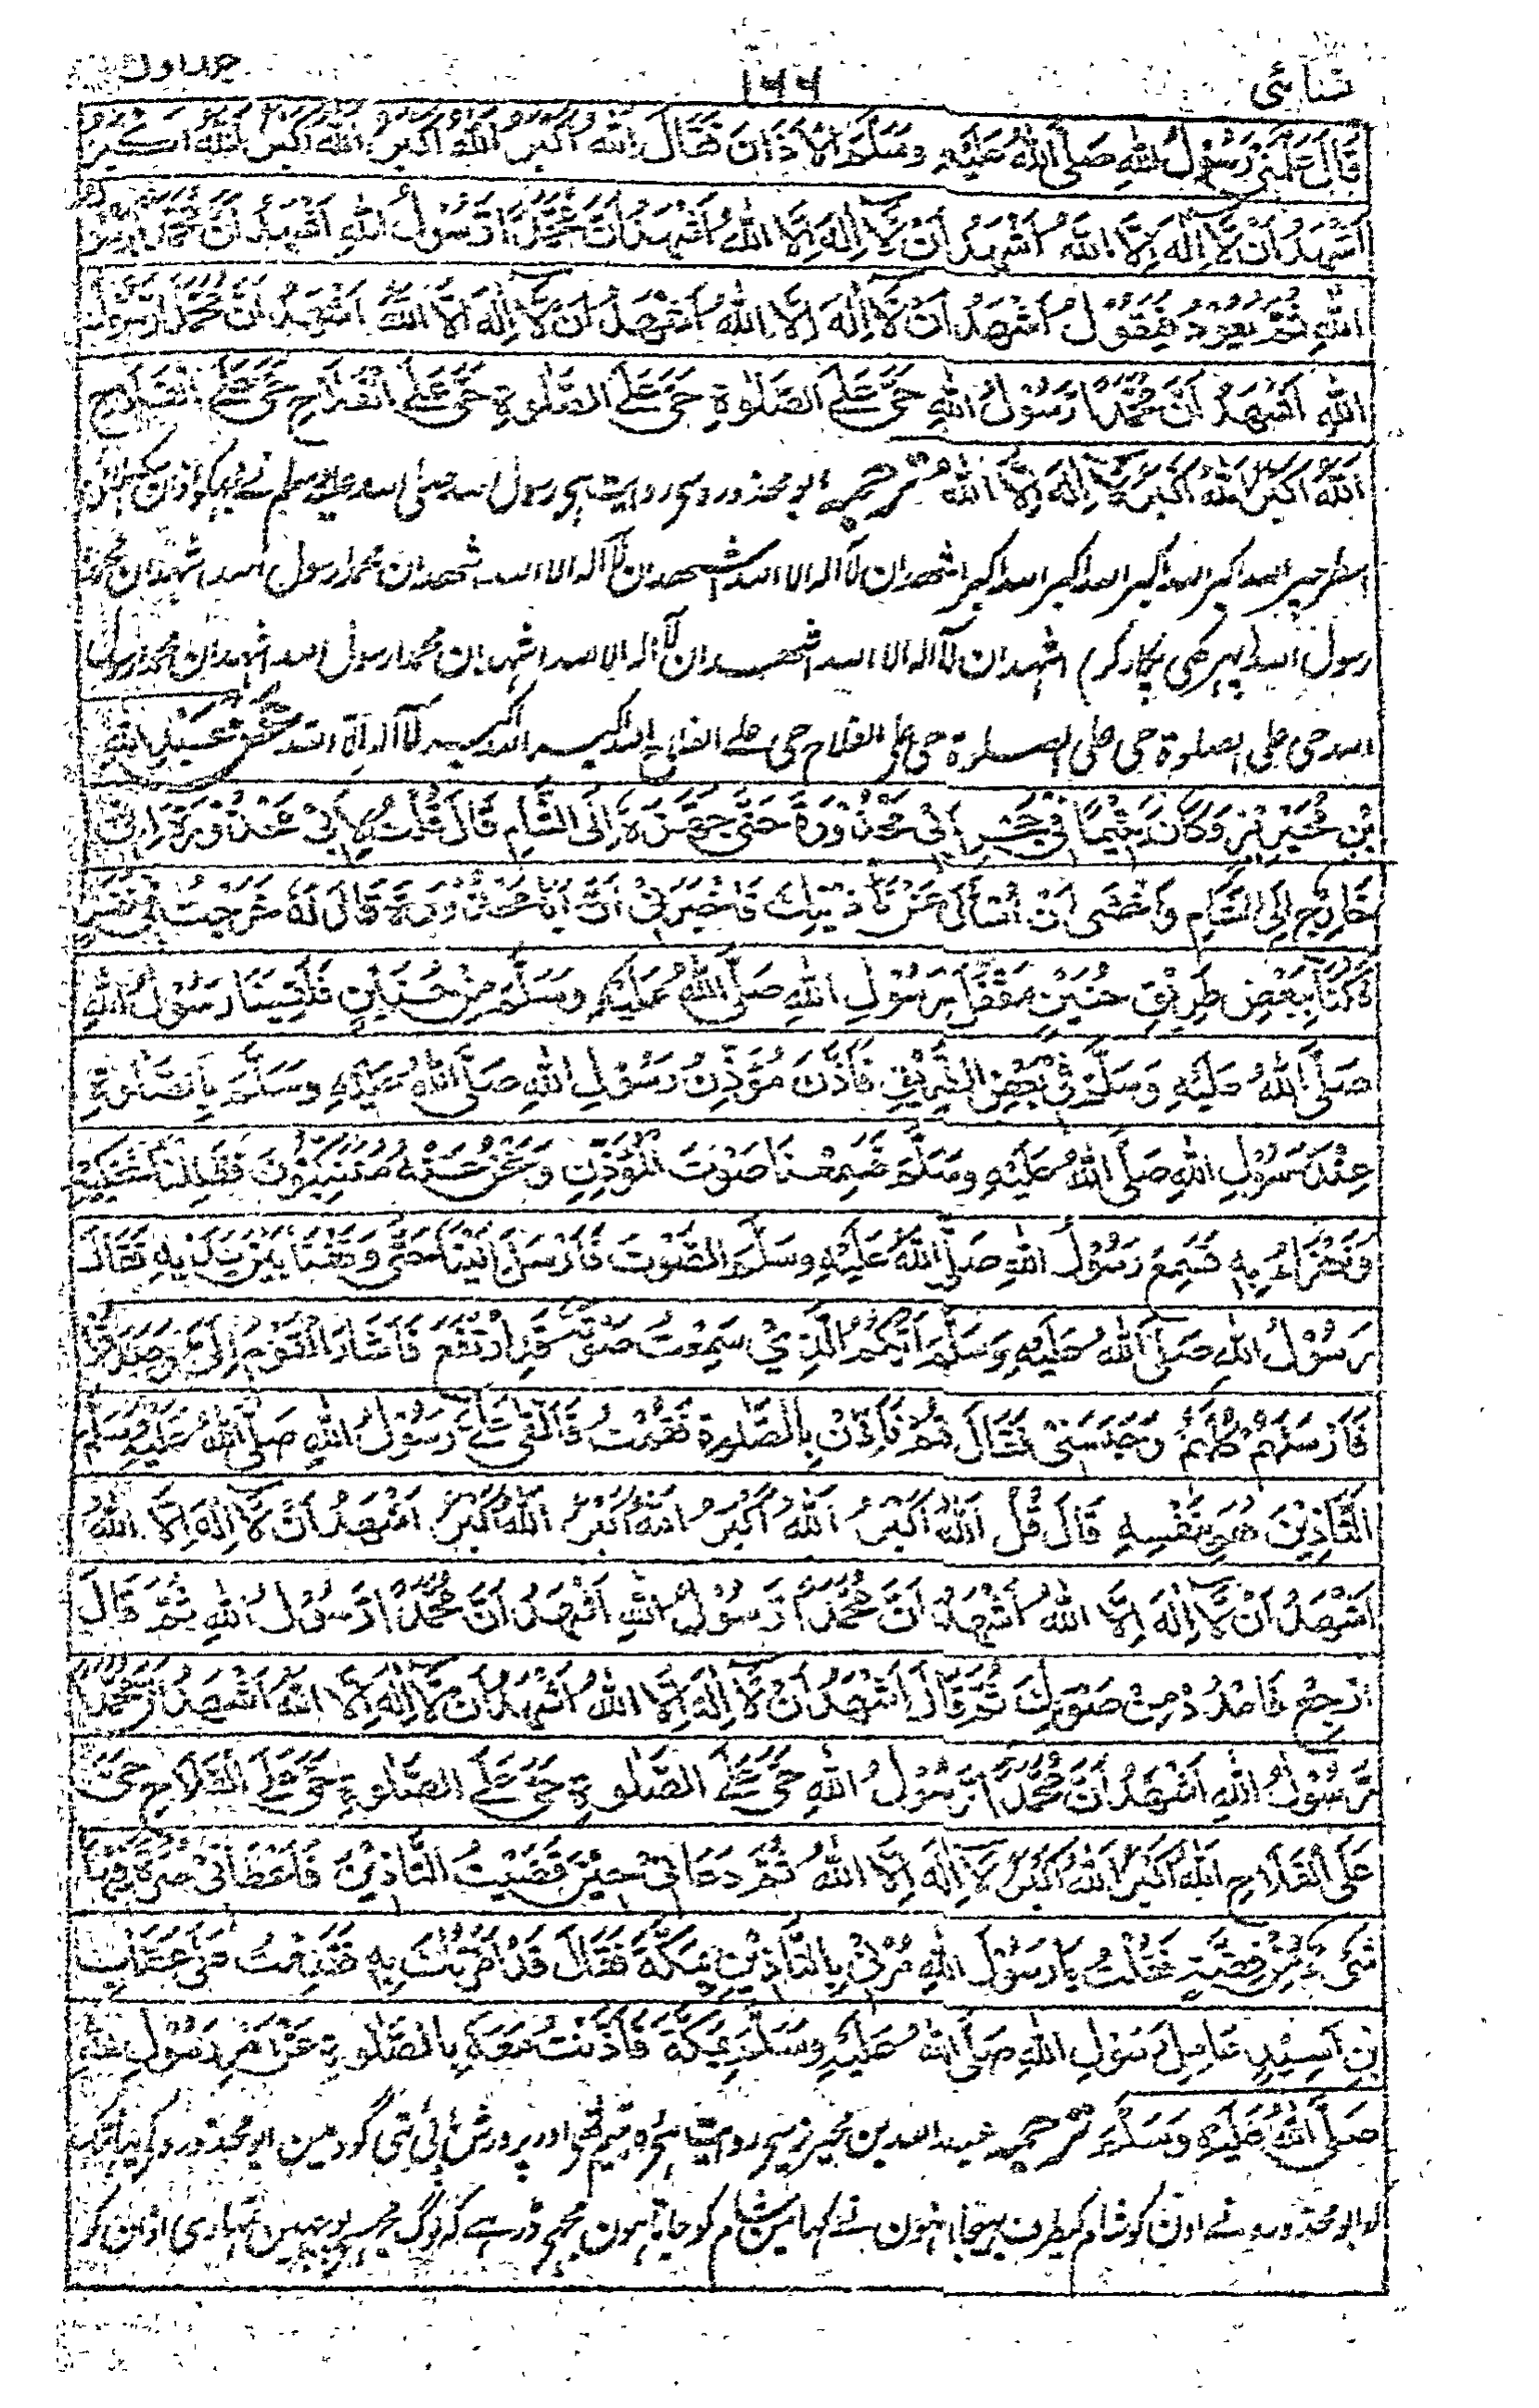 نسائی ۱۶۶ جلد اول
قَالَ عَلَّمَنِيْ رَسُوْلُ اللهِ صَلَّى اللهُ عَلَيْهِ وَسَلَّمَ الْاَذَانَ فَقَالَ اَللهُ اَكْبَرُ اَللهُ اَكْبَرُ اَللهُ اَكْبَرُ اَللهُ اَكْبَرُ
اَشْهَدُ اَنْ لَّا اِلٰهَ اِلَّا اللهُ اَشْهَدُ اَنْ لَّا اِلٰهَ اِلَّا اللهُ اَشْهَدُ اَنَّ مُحَمَّدًا رَّسُوْلُ اللهِ اَشْهَدُ اَنَّ مُحَمَّدًا رَّسُوْلُ
اللهِ ثُمَّ يَعُوْدُ فَيَقُوْلُ اَشْهَدُ اَنْ لَّا اِلٰهَ اِلَّا اللهُ اَشْهَدُ اَنْ لَّا اِلٰهَ اِلَّا اللهُ اَشْهَدُ اَنَّ مُحَمَّدًا رَّسُوْلُ
اللهِ اَشْهَدُ اَنَّ مُحَمَّدًا رَّسُوْلُ اللهِ حَيَّ عَلَى الصَّلٰوةِ حَيَّ عَلَى الصَّلٰوةِ حَيَّ عَلَى الْفَلَاحِ حَيَّ عَلَى الْفَلَاحِ
اَللهُ اَكْبَرُ اَللهُ اَكْبَرُ لَا اِلٰهَ اِلَّا اللهُ ترجمہ ابو محذورہ سے روایت ہے رسول اسد صلی اسد علیہ وسلم نے مجھکو اذان سکہلائی
اسطرحپر اسد اکبر اسد اکبر اسد اکبر اسد اکبر اشہد ان لا الہ الا اسد اشہد ان لا الہ الا اسد اشہد ان محمدا رسول اسد اشہد ان محمدا
رسول اسد پہر کہی پکار کر اشہد ان لا الہ الا اسد اشہد ان لا الہ الا اسد اشہد ان محمدا رسول اسد اشہد ان محمدا رسول
اسد حی علی الصلوۃ حی علی الصلوۃ حی علی الفلاح حی علے الفلاح اسد اکبر اسد اکبر لا الہ الا اسد عَنْ عَبْدِ اللهِ
بْنِ مُحَيْرِيْزٍ وَكَانَ يَتِيْمًا فِيْ حَجْرِ اَبِيْ مَحْذُوْرَةَ حَتّٰى جَهَّزَهٗ اِلَى الشَّامِ قَالَ قُلْتُ لِاَبِيْ مَحْذُوْرَةَ اِنِّيْ
خَارِجٌ اِلَى الشَّامِ وَاَخْشٰى اَنْ اُسْاَلَ عَنْ تَاْذِيْنِكَ فَاَخْبَرَنِيْ اَنَّ اَبَا مَحْذُوْرَةَ قَالَ لَهٗ خَرَجْتُ فِيْ نَفَرٍ
فَكُنَّا بِبَعْضِ طَرِيْقِ حُنَيْنٍ مَقْفَلَ رَسُوْلِ اللهِ صَلَّى اللهُ عَلَيْهِ وَسَلَّمَ مِنْ حُنَيْنٍ فَلَقِيَنَا رَسُوْلُ اللهِ
صَلَّى اللهُ عَلَيْهِ وَسَلَّمَ فِيْ بَعْضِ الطَّرِيْقِ فَاَذَّنَ مُؤَذِّنُ رَسُوْلِ اللهِ صَلَّى اللهُ عَلَيْهِ وَسَلَّمَ بِالصَّلٰوةِ
عِنْدَ رَسُوْلِ اللهِ صَلَّى اللهُ عَلَيْهِ وَسَلَّمَ فَسَمِعْنَا صَوْتَ الْمُؤَذِّنِ وَنَحْنُ عَنْهُ مُتَنَكِّبُوْنَ فَظَلِلْنَا نَحْكِيْهِ
وَنَهْزَاُ بِهٖ فَسَمِعَ رَسُوْلُ اللهِ صَلَّى اللهُ عَلَيْهِ وَسَلَّمَ الصَّوْتَ فَاَرْسَلَ اِلَيْنَا حَتّٰى وَقَفْنَا بَيْنَ يَدَيْهِ فَقَالَ
رَسُوْلُ اللهِ صَلَّى اللهُ عَلَيْهِ وَسَلَّمَ اَيُّكُمُ الَّذِيْ سَمِعْتُ صَوْتَهٗ قَدِ ارْتَفَعَ فَاَشَارَ الْقَوْمُ اِلَيَّ وَصَدَقُوْا
فَاَرْسَلَهُمْ كُلَّهُمْ وَحَبَسَنِيْ فَقَالَ قُمْ فَاَذِّنْ بِالصَّلٰوةِ فَقُمْتُ فَاَلْقٰى عَلَيَّ رَسُوْلُ اللهِ صَلَّى اللهُ عَلَيْهِ وَسَلَّمَ
التَّاْذِيْنَ هُوَ بِنَفْسِهٖ قَالَ قُلْ اَللهُ اَكْبَرُ اَللهُ اَكْبَرُ اَللهُ اَكْبَرُ اَللهُ اَكْبَرُ اَشْهَدُ اَنْ لَّا اِلٰهَ اِلَّا اللهُ
اَشْهَدُ اَنْ لَّا اِلٰهَ اِلَّا اللهُ اَشْهَدُ اَنَّ مُحَمَّدًا رَّسُوْلُ اللهِ اَشْهَدُ اَنَّ مُحَمَّدًا رَّسُوْلُ اللهِ ثُمَّ قَالَ
ارْجِعْ فَامْدُدْ مِنْ صَوْتِكَ ثُمَّ قَالَ اَشْهَدُ اَنْ لَّا اِلٰهَ اِلَّا اللهُ اَشْهَدُ اَنْ لَّا اِلٰهَ اِلَّا اللهُ اَشْهَدُ اَنَّ مُحَمَّدًا
رَّسُوْلُ اللهِ اَشْهَدُ اَنَّ مُحَمَّدًا رَّسُوْلُ اللهِ حَيَّ عَلَى الصَّلٰوةِ حَيَّ عَلَى الصَّلٰوةِ حَيَّ عَلَى الْفَلَاحِ حَيَّ
عَلَى الْفَلَاحِ اَللهُ اَكْبَرُ اَللهُ اَكْبَرُ لَا اِلٰهَ اِلَّا اللهُ ثُمَّ دَعَانِيْ حِيْنَ قَضَيْتُ التَّاْذِيْنَ فَاَعْطَانِيْ صُرَّةً فِيْهَا
شَيْءٌ مِّنْ فِضَّةٍ فَقُلْتُ يَا رَسُوْلَ اللهِ مُرْنِيْ بِالتَّاْذِيْنِ بِمَكَّةَ فَقَالَ قَدْ اَمَرْتُكَ بِهٖ فَقَدِمْتُ عَلٰى عَتَّابِ
بْنِ اَسِيْدٍ عَامِلِ رَسُوْلِ اللهِ صَلَّى اللهُ عَلَيْهِ وَسَلَّمَ بِمَكَّةَ فَاَذَّنْتُ مَعَهٗ بِالصَّلٰوةِ عَنْ اَمْرِ رَسُوْلِ اللهِ
صَلَّى اللهُ عَلَيْهِ وَسَلَّمَ ترجمہ عبد اسد بن محیریز سے روایت ہے وہ یتیم تھی اور پرورش پائی تہی گود مین ابو محذورہ کی یہانتک
کہ ابو محذورہ نے اون کو شام کیطرف بہیجا انہون نے کہا مین شام کو جاتا ہون مجہے ڈر ہے کہ لوگ مجہسے پوچہین تمہاری اذان کو